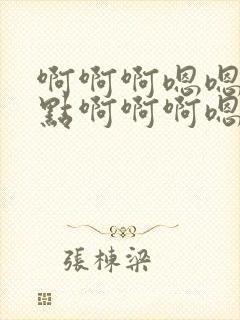 啊啊啊嗯嗯
點啊啊啊嗯
張棟梁